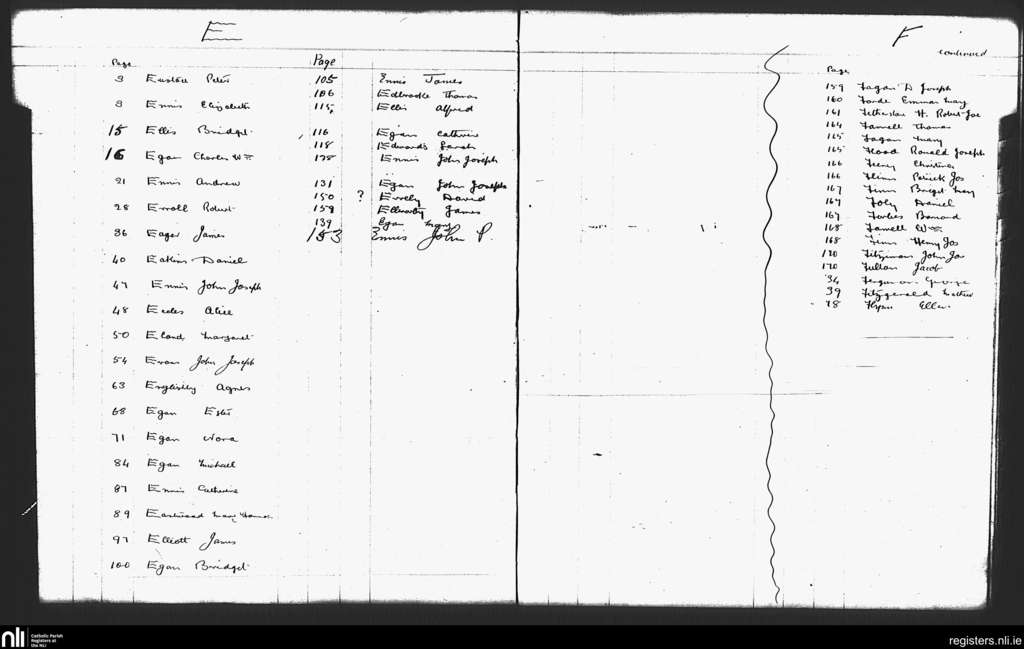 E
Page
3 Eustace Peter
3 Ennis Elizabeth
15 Ellis Bridget
16 Egan Charles Wm
21 Ennis Andrew
28 Erroll Robert
36 Eager James
40 Eakins Daniel
47 Ennis John Joseph
48 Eccles Alice
50 Margaret
54 Evans John Joseph
63 Agnes
68 Egan Ester
71 Egan Nora
84 Egan Michael
87 Ennis Catherine
89 Eastwood Mary
97 Elliott James
100 Egan Bridget
Page
105 Ennis James
106 Edbrooke Thomas
115 Ellis Alfred
116 Egan Catherine
118 Edwards Sarah
128 Ennis John Joseph
131 Egan John Joseph
150 ? David
159 James
139 Egan Mary
153 Ennis John P.
F
continued
Page
159 Fagan D Joseph
160 Forde Emma Mary
161 H. Robert Jos
164 Farrell Thomas
165 Fagan Mary
165 Ronald Joseph
166 Feeny Christina
166 Patrick Jos
167 Finn Bridget Mary
167 Foley Daniel
167 Forbes Bernard
168 Farrell Wm
168 Finn Henry Jos
170 Fitzsimon John Jos
170 Fullam Jacob
34 Ferguson George
39 Fitzgerald
78 Flynn Ellen
nli
Catholic Parish
Registers at
the NLI
registers.nli.ie